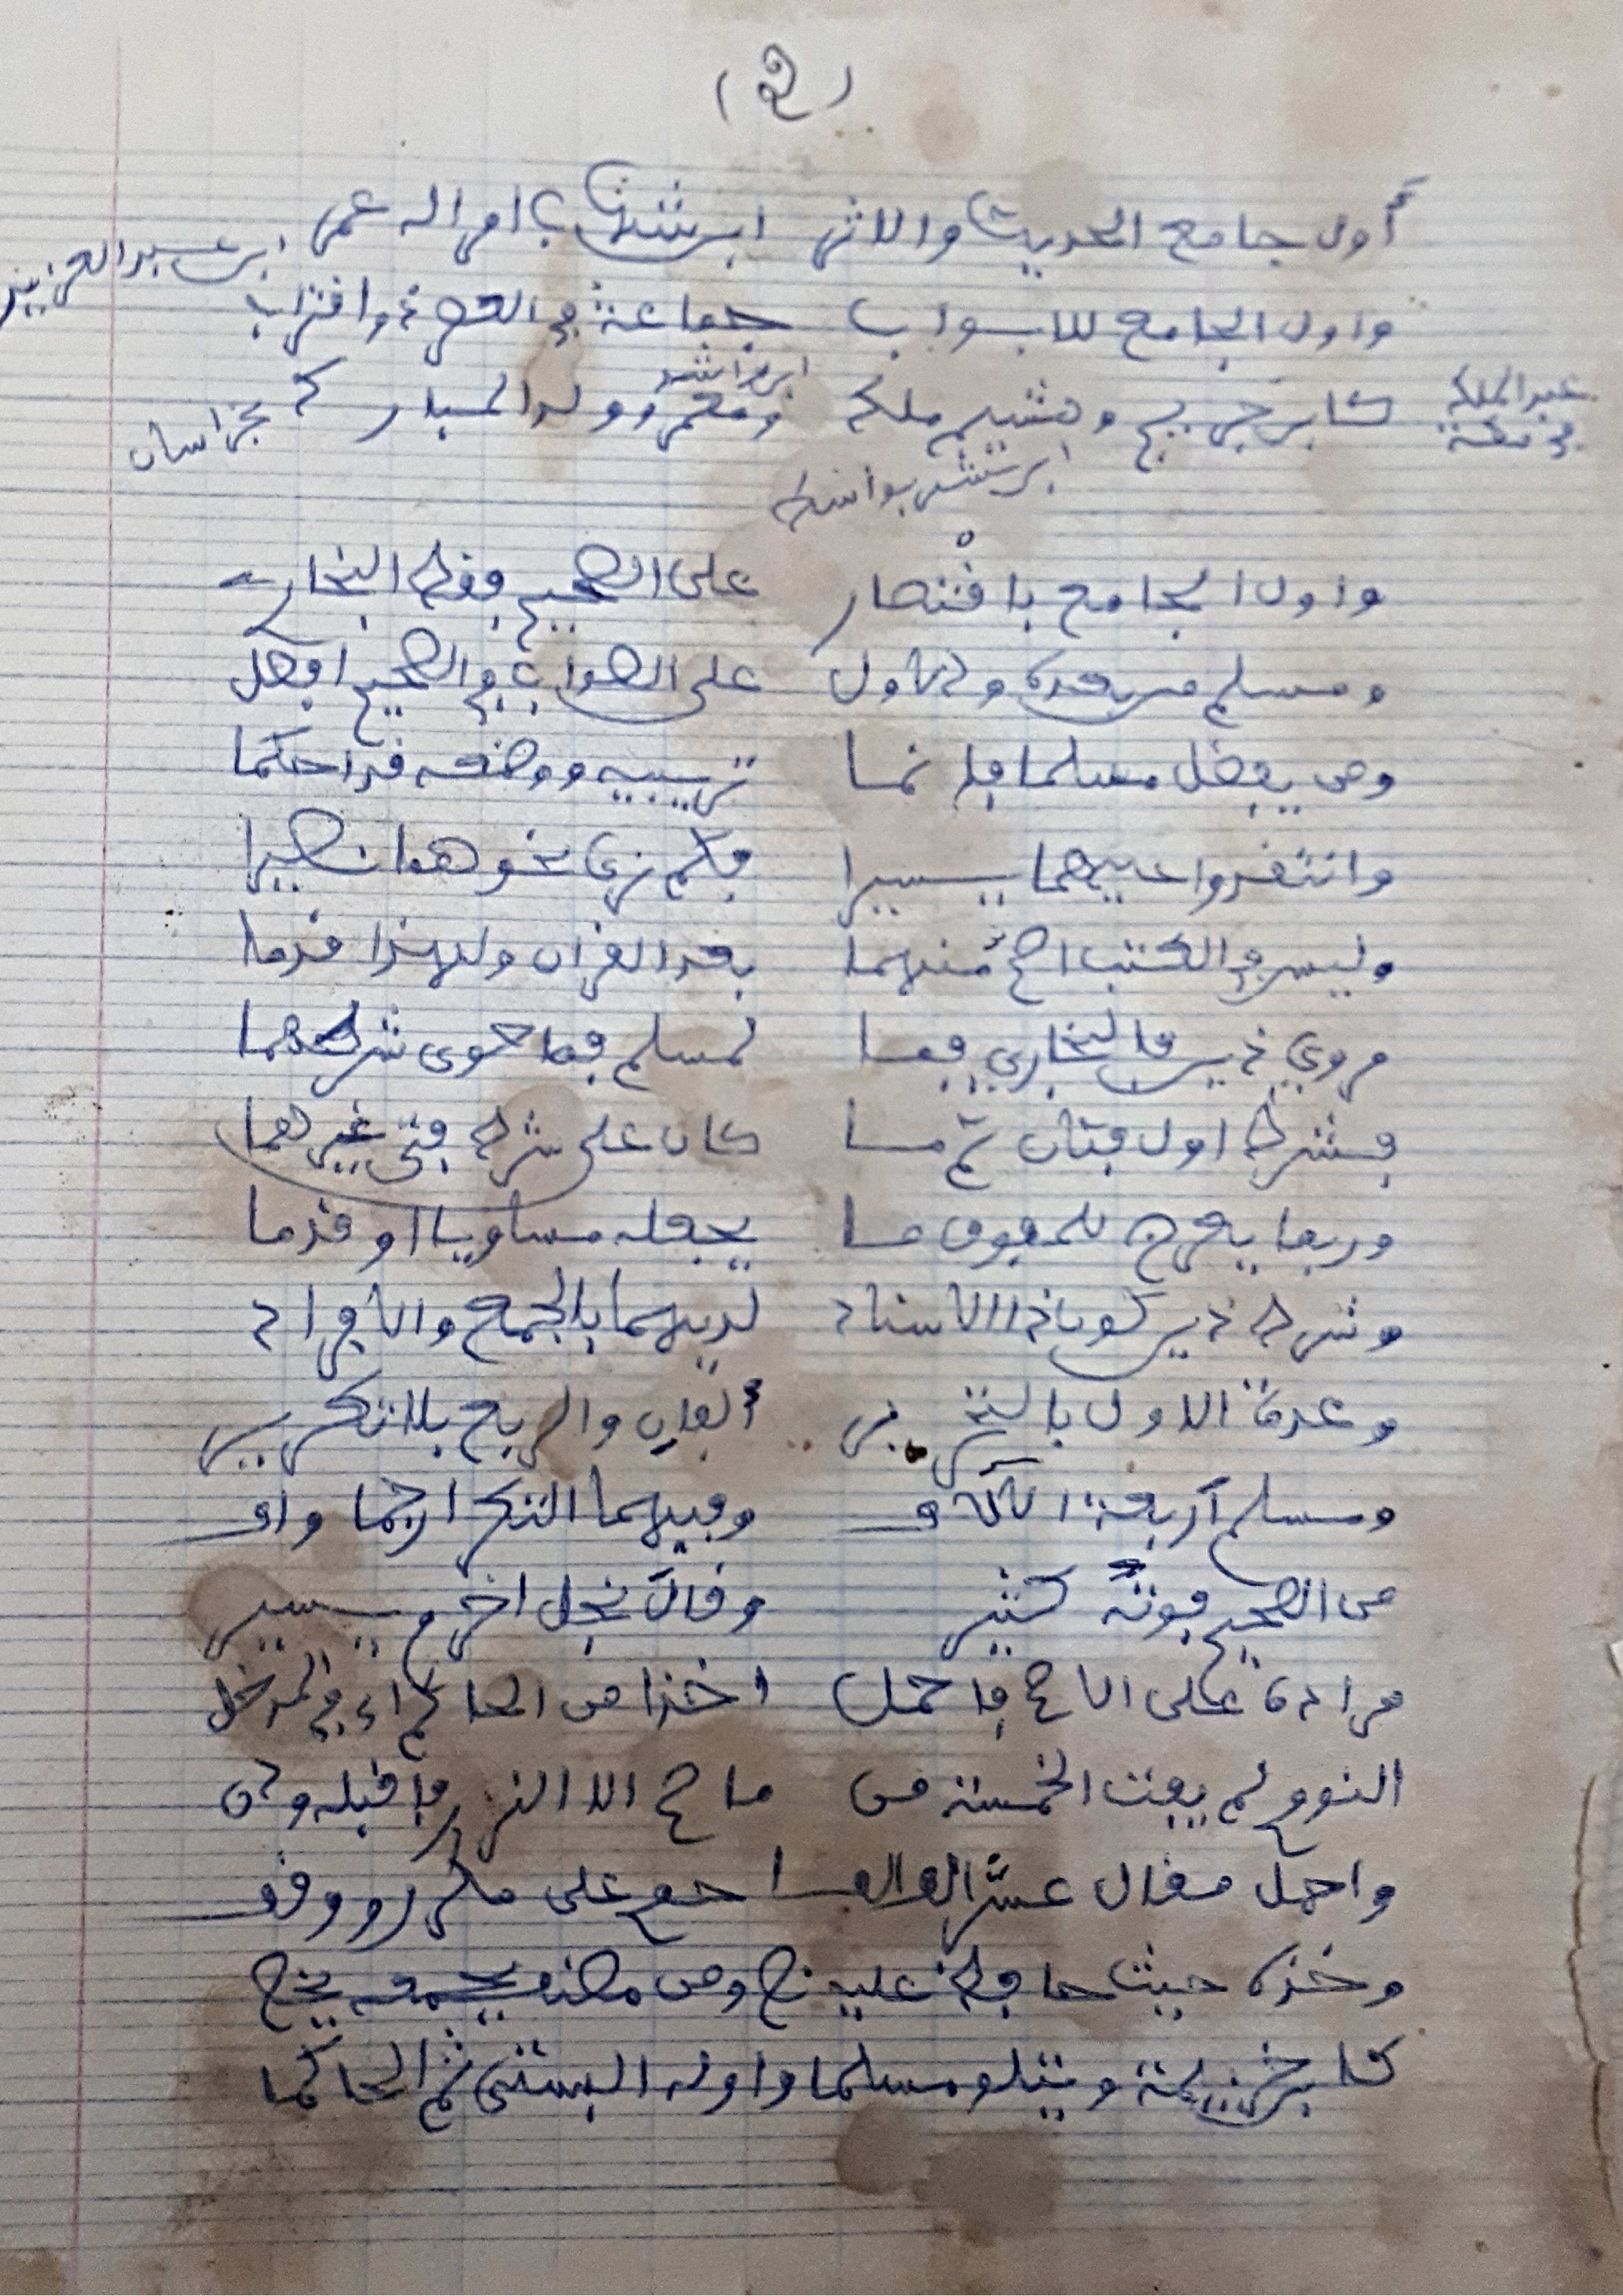 (2)
أول جامع الحديث والاثر ابن شهاب امر اله عمر ابن عبد العزيز
واول الجامع للابواب جماعة في العصر ذو اقتراب
ابن راشد
عبد الملك كابن جريج وهشيم ملك ومعمر وولد المبارك بخراسان
في مكة
ابن بشير بواسط
واول الجامع باقتصار على الصحيح فقط البخاري
ومسلم من بعده والاول على الصواب في الصحيح افضل
ومن يفضل مسلما فإنما ترتيبه ووضعه قد احكما
وانتقدوا عليهما يسيرا فكم ترى نحوهما نصيرا
وليس في الكتب اصح منهما بعد القران ولهذا قدما
مروي ذين فالبخاري فما لمسلم فما حوى شرطهما
فشرط اول فثان ثم ما كان على شرط فتى غيرهما
وربما يعرض للمفوق ما يجعله مساويا او قدما
وشرط ذين كون ذا الاسناد لديهما بالجمع والافراد
وعدة الاول بالتحرير ألفان والربع بلا تكرير
ومسلم أربعة الآلاف وفيهما التكرار جما واف
من الصحيح فوتا كثير وقال نجل اخرم يسير
مراده على الاصح فاحمل اخذا من الحاكم اي في المدخل
النووي لم يفت الخمسة من ما صح الا النزر فاقبله ودن
واحمل مقال عشر الف الف احوي على مكرر ووقف
وخذه حيث حافظ عليه نص ومن مصنف بجمعه يخص
كابن خزيمة ويتلو مسلما واوله البستي ثم الحاكما